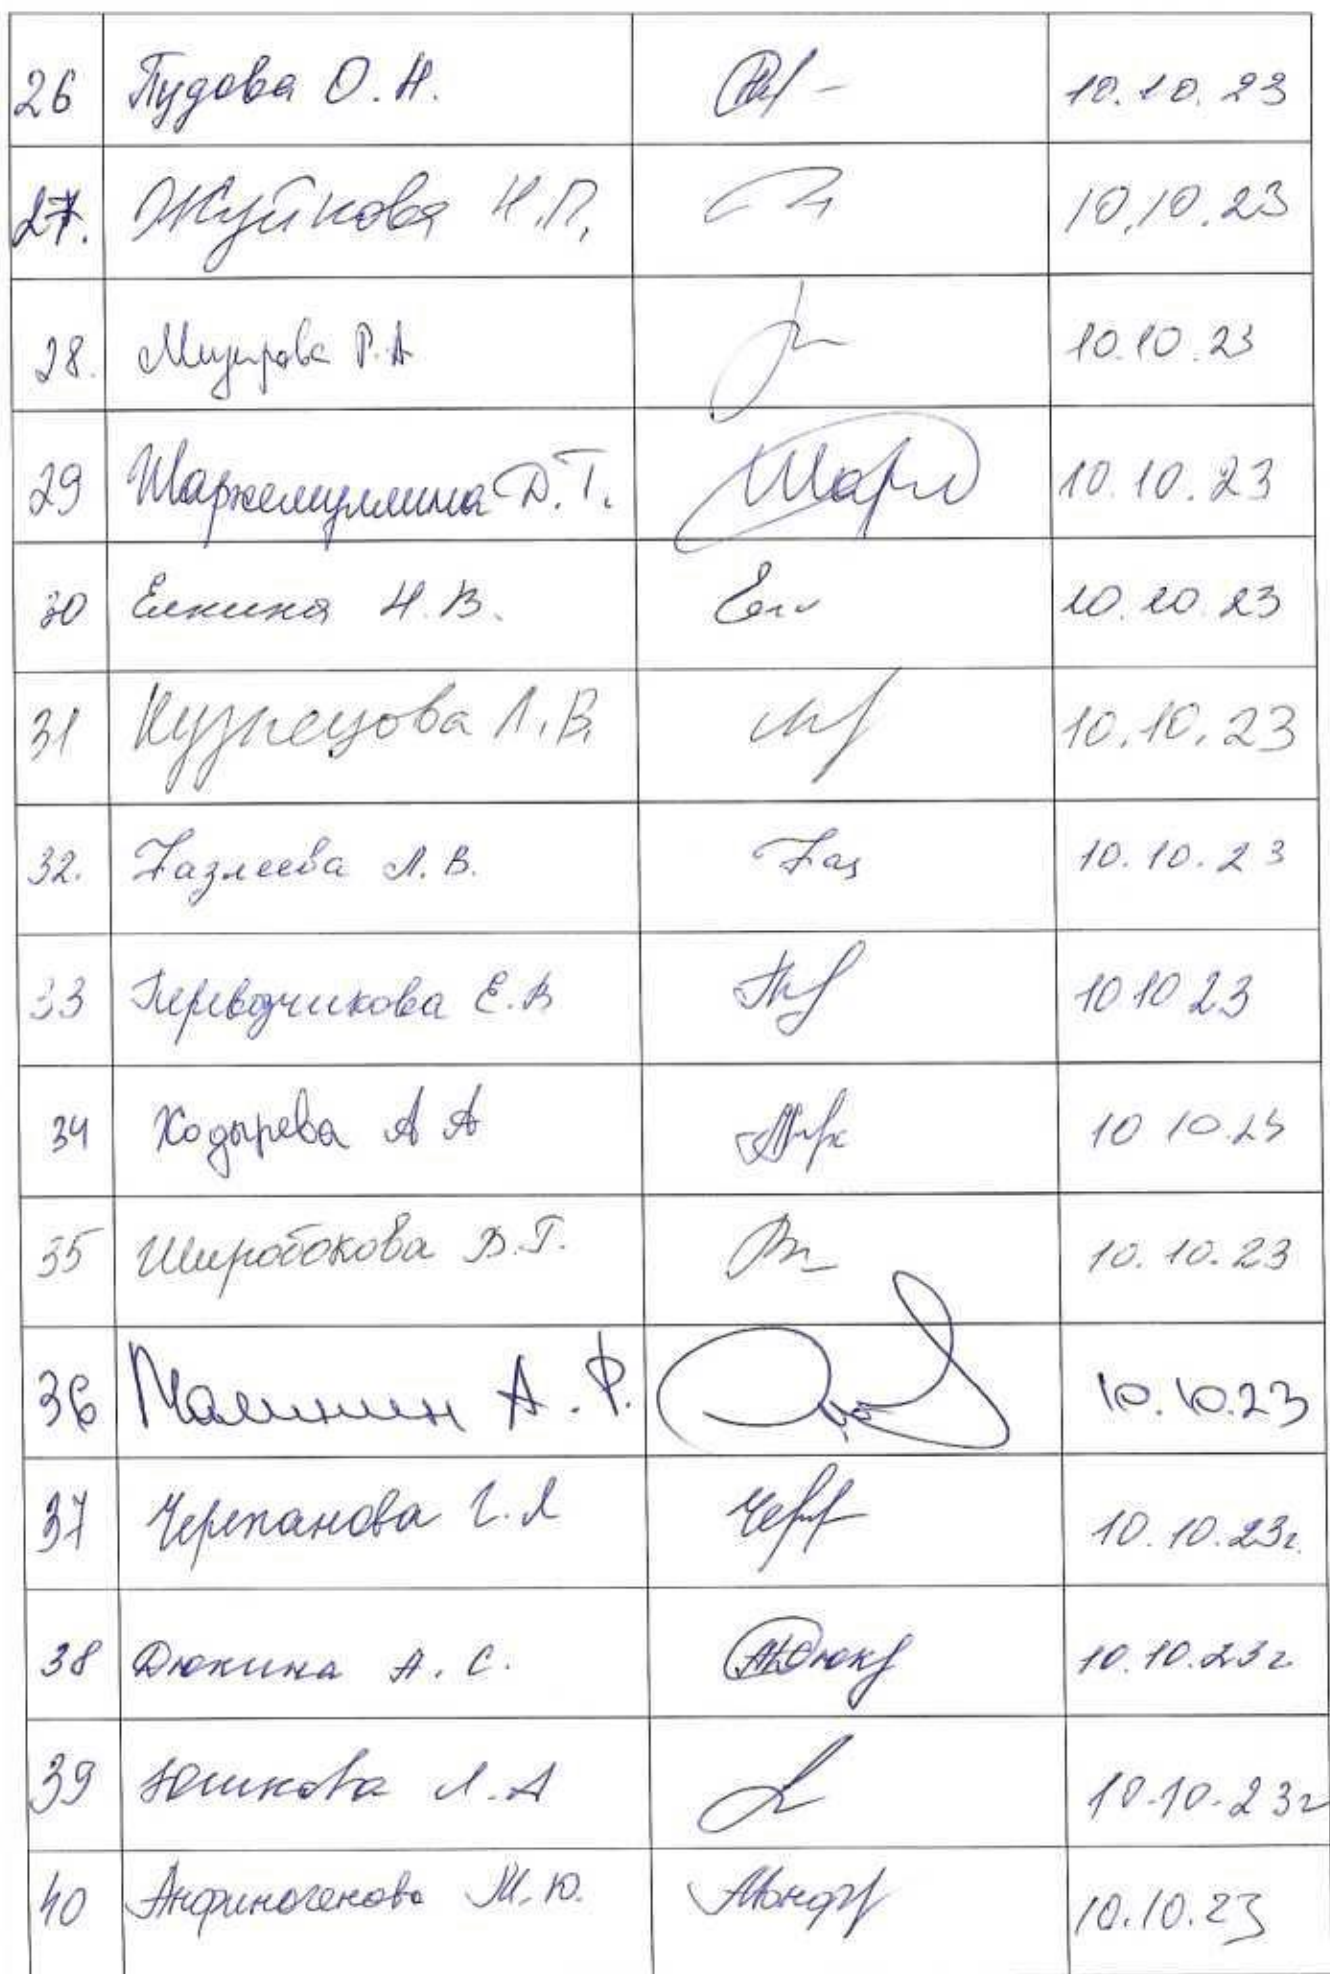 26 Пудова О.Н. 10.10.23
27. Жуйкова Н.П. 10.10.23
28. Р.А 10.10.23
29 Д.Т. 10.10.23
30 Елкина Н.В. Елк 10.10.23
31 Кузнецова Л.В. 10.10.23
32. Фазлеева Л.В. Фаз 10.10.23
33 Переводчикова Е.В 10 10 23
34 Ходырева А А 10 10.23
35 Широбокова В.Г. 10.10.23
36 Малинин А.Р. 10.10.23
37 Черепанова Г.Л 10.10.23г.
38 Дюкина А.С. 10.10.23г
39 Юшкова Л.А 10.10.23г
40 Анфиногенова М.Ю. 10.10.23